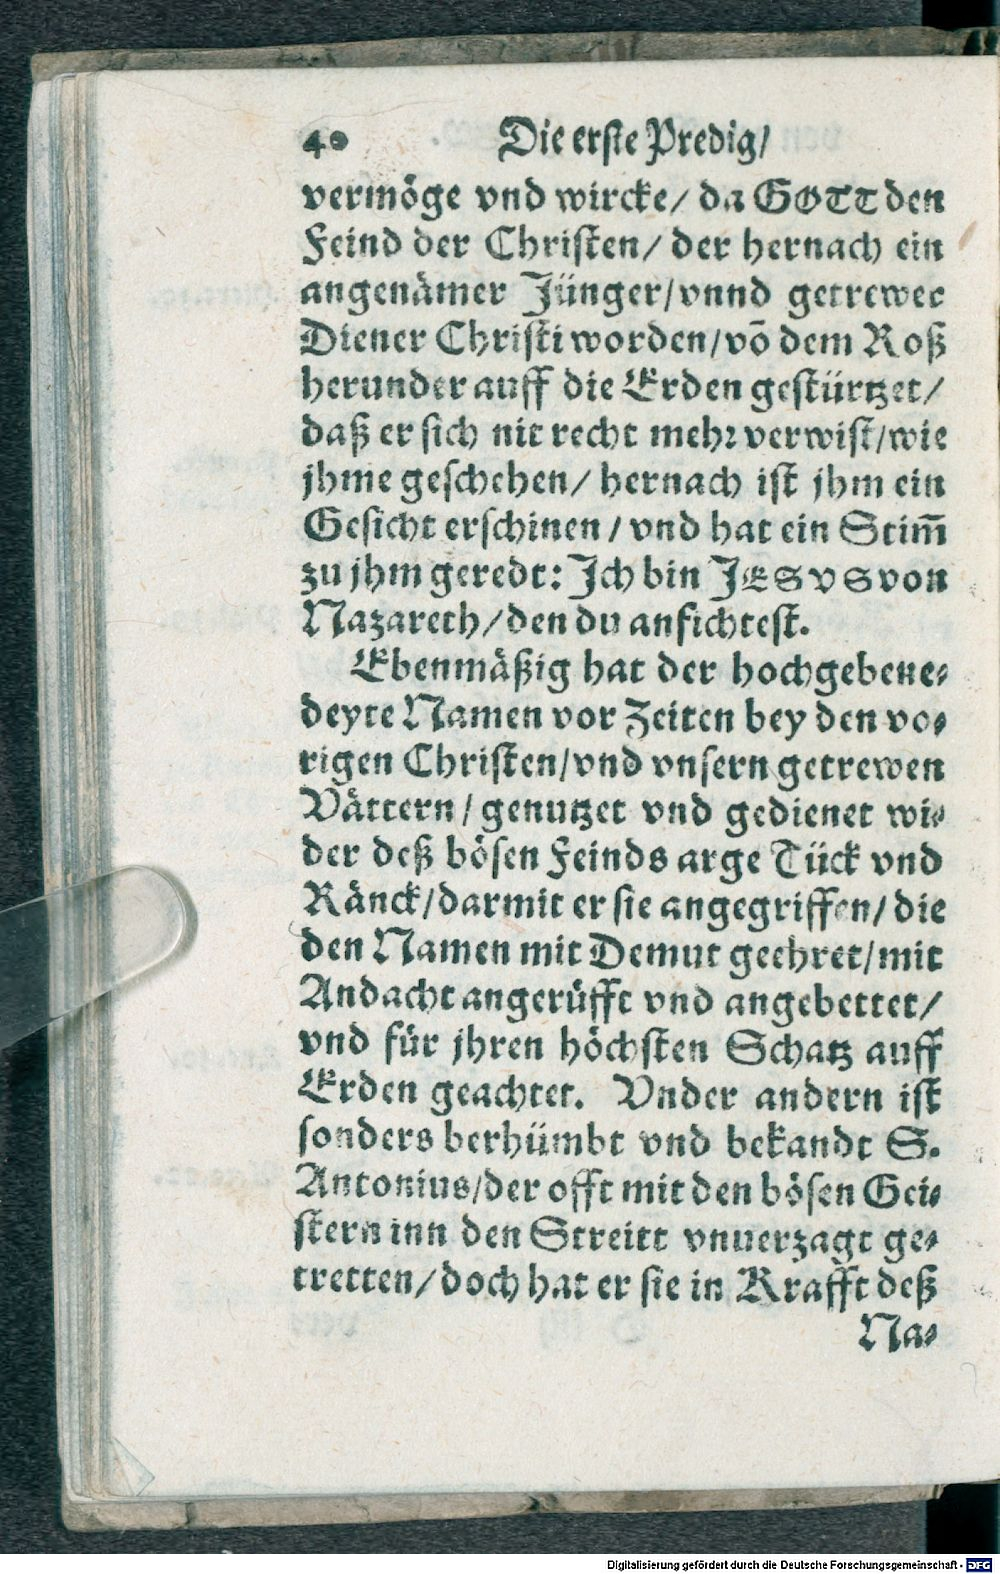 40 Die erste Predig/
vermöge vnd wircke/ da GOTT den
Feind der Christen/ der hernach ein
angenämer Jünger/vnnd getrewer
Diener Christi worden/võ dem Roß
herunder auff die Erden gestürtzet/
daß er sich nit recht mehr verwist/wie
jhme geschehen/ hernach ist jhm ein
Gesicht erschinen/ vnd hat ein Stim̃
zu jhm geredt: Ich bin JESVS von
Nazareth/den du anfichtest.
Ebenmäßig hat der hochgebene-
deyte Namen vor Zeiten bey den vo-
rigen Christen/vnd vnsern getrewen
Vättern/ genutzet vnd gedienet wi-
der deß bösen Feinds arge Tück vnd
Ränck/darmit er sie angegriffen/ die
den Namen mit Demut geehret/mit
Andacht angerüfft vnd angebettet/
vnd für jhren höchsten Schatz auff
Erden geachtet. Vnder andern ist
sonders berhümbt vnd bekandt S.
Antonius/der offt mit den bösen Gei-
stern inn den Streitt vnuerzagt ge-
tretten/doch hat er sie in Krafft deß
Na-
Digitalisierung gefördert durch die Deutsche Forschungsgemeinschaft - DFG